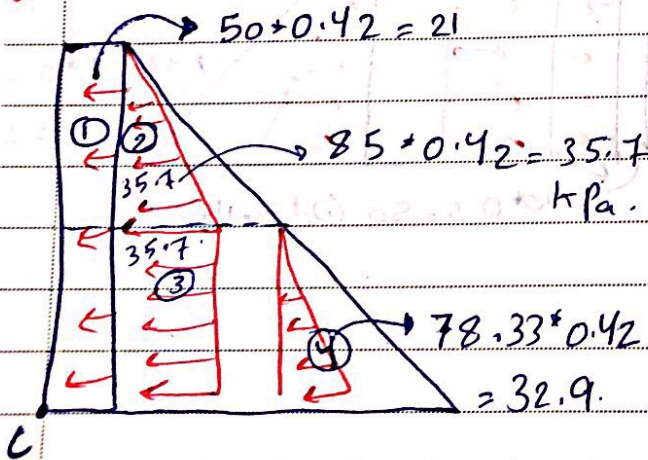 50*0.42 = 21
① ②
85*0.42 = 35.7
kPa.
35.7
35.7.
③
78.33*0.42
④
= 32.9.
C